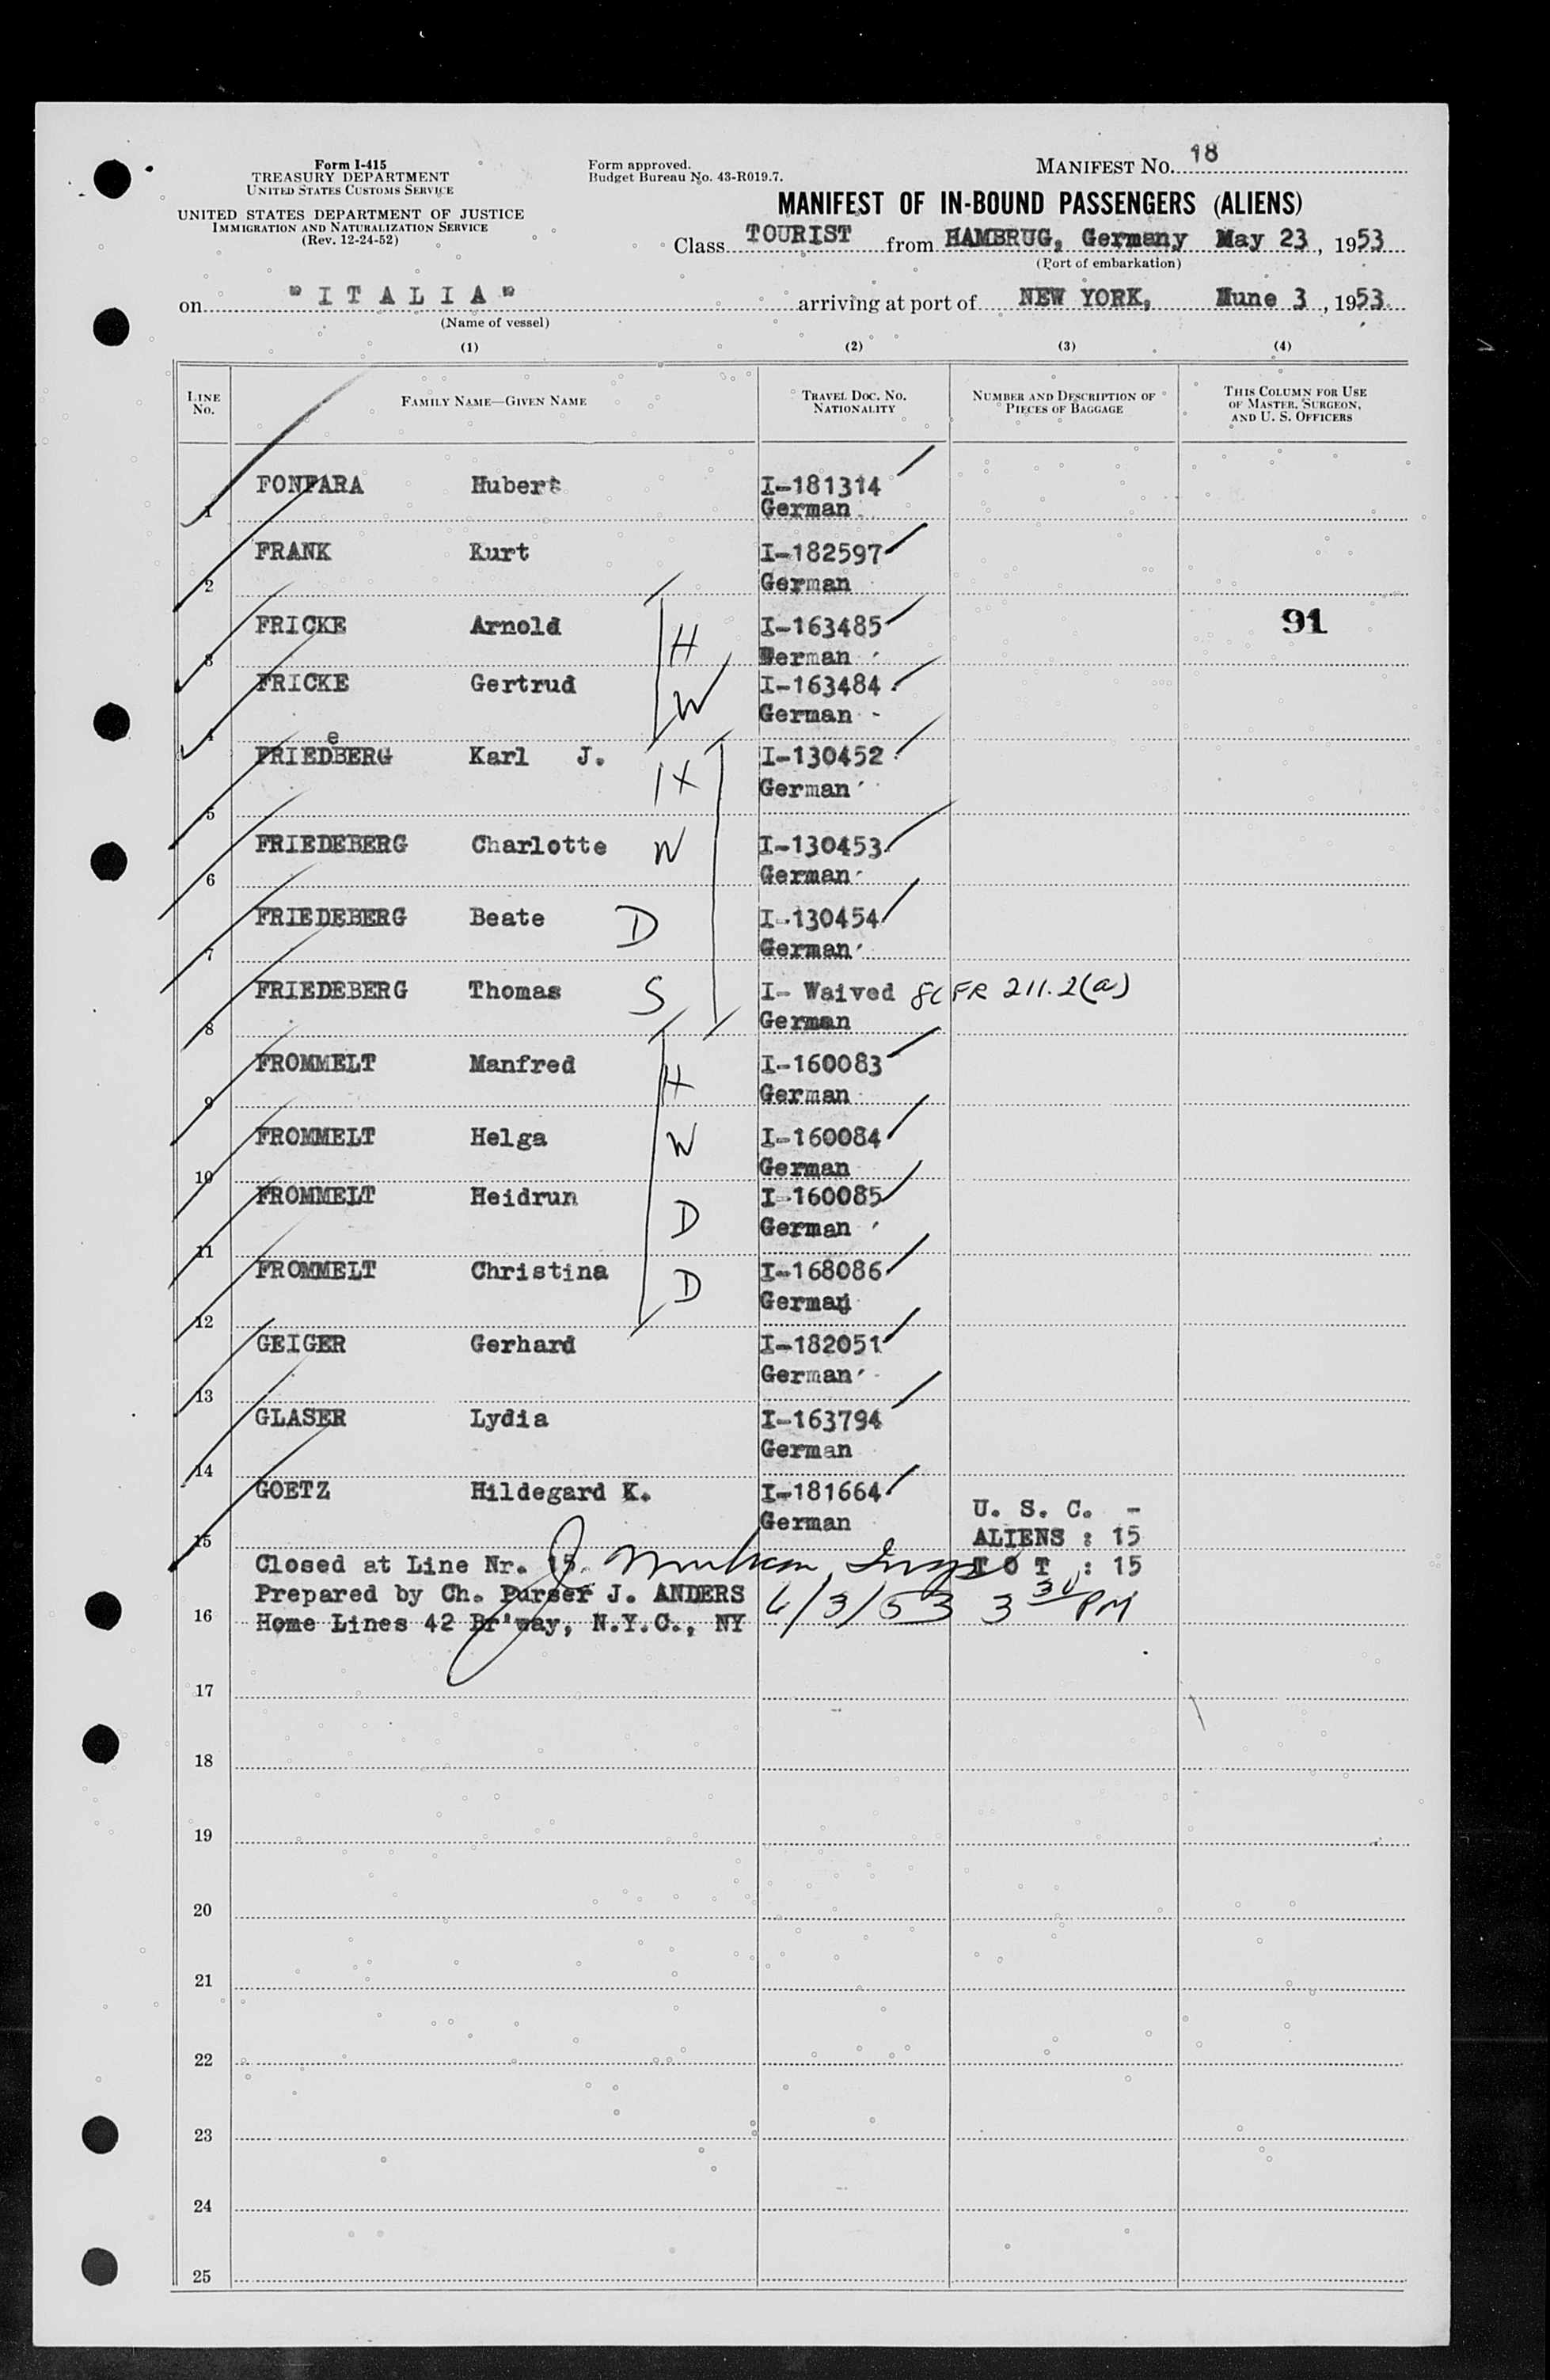 Form I-415
TREASURY DEPARTMENT
UNITED STATES CUSTOMS SERVICE
UNITED STATES DEPARTMENT OF JUSTICE
IMMIGRATION AND NATURALIZATION SERVICE
(Rev. 12-24-52)
Form approved.
Budget Bureau No. 43-R019.7.
MANIFEST NO. 18
MANIFEST OF IN-BOUND PASSENGERS (ALIENS)
Class TOURIST from HAMBRUG, Germany May 23, 1953
(Port of embarkation)
on "ITALIA" arriving at port of NEW YORK, June 3, 1953
(Name of vessel)
(1) (2) (3) (4)
LINE No. FAMILY NAME—GIVEN NAME TRAVEL DOC. NO. NATIONALITY NUMBER AND DESCRIPTION OF PIECES OF BAGGAGE THIS COLUMN FOR USE OF MASTER, SURGEON, AND U. S. OFFICERS
1 FONFARA Hubert I-181314
German
2 FRANK Kurt I-182597
German
3 FRICKE Arnold H I-163485 91
German
4 FRICKE Gertrud W I-163484
German
e
5 FRIEDBERG Karl J. H I-130452
German
6 FRIEDEBERG Charlotte W I-130453
German
7 FRIEDEBERG Beate D I-130454
German
8 FRIEDEBERG Thomas S I- Waived 8CFR 211.2(a)
German
9 FROMMELT Manfred H I-160083
German
10 FROMMELT Helga W I-160084
German
11 FROMMELT Heidrun D I-160085
German
12 FROMMELT Christina D I-168086
German
13 GEIGER Gerhard I-182051
German
14 GLASER Lydia I-163794
German
15 GOETZ Hildegard K. I-181664
German
U. S. C. -
ALIENS : 15
T O T : 15
Closed at Line Nr. 15.
Prepared by Ch. Purser J. ANDERS 6/3/53 3 30 PM
16 Home Lines 42 Br'way, N.Y.C., NY
17
18
19
20
21
22
23
24
25